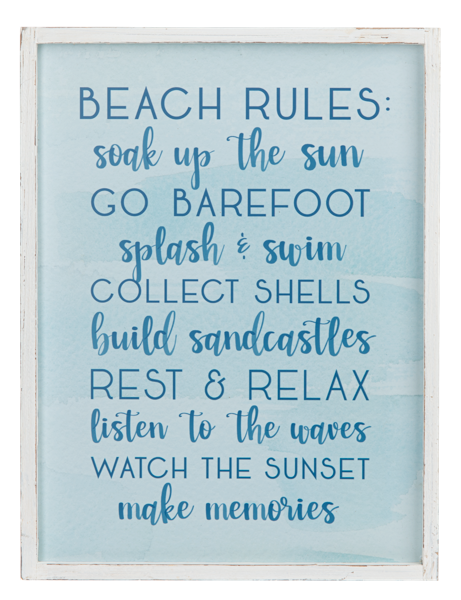 BEACH RULES:
soak up the sun
GO BAREFOOT
splash & swim
COLLECT SHELLS
build sandcastles
REST & RELAX
listen to the waves
WATCH THE SUNSET
make memories